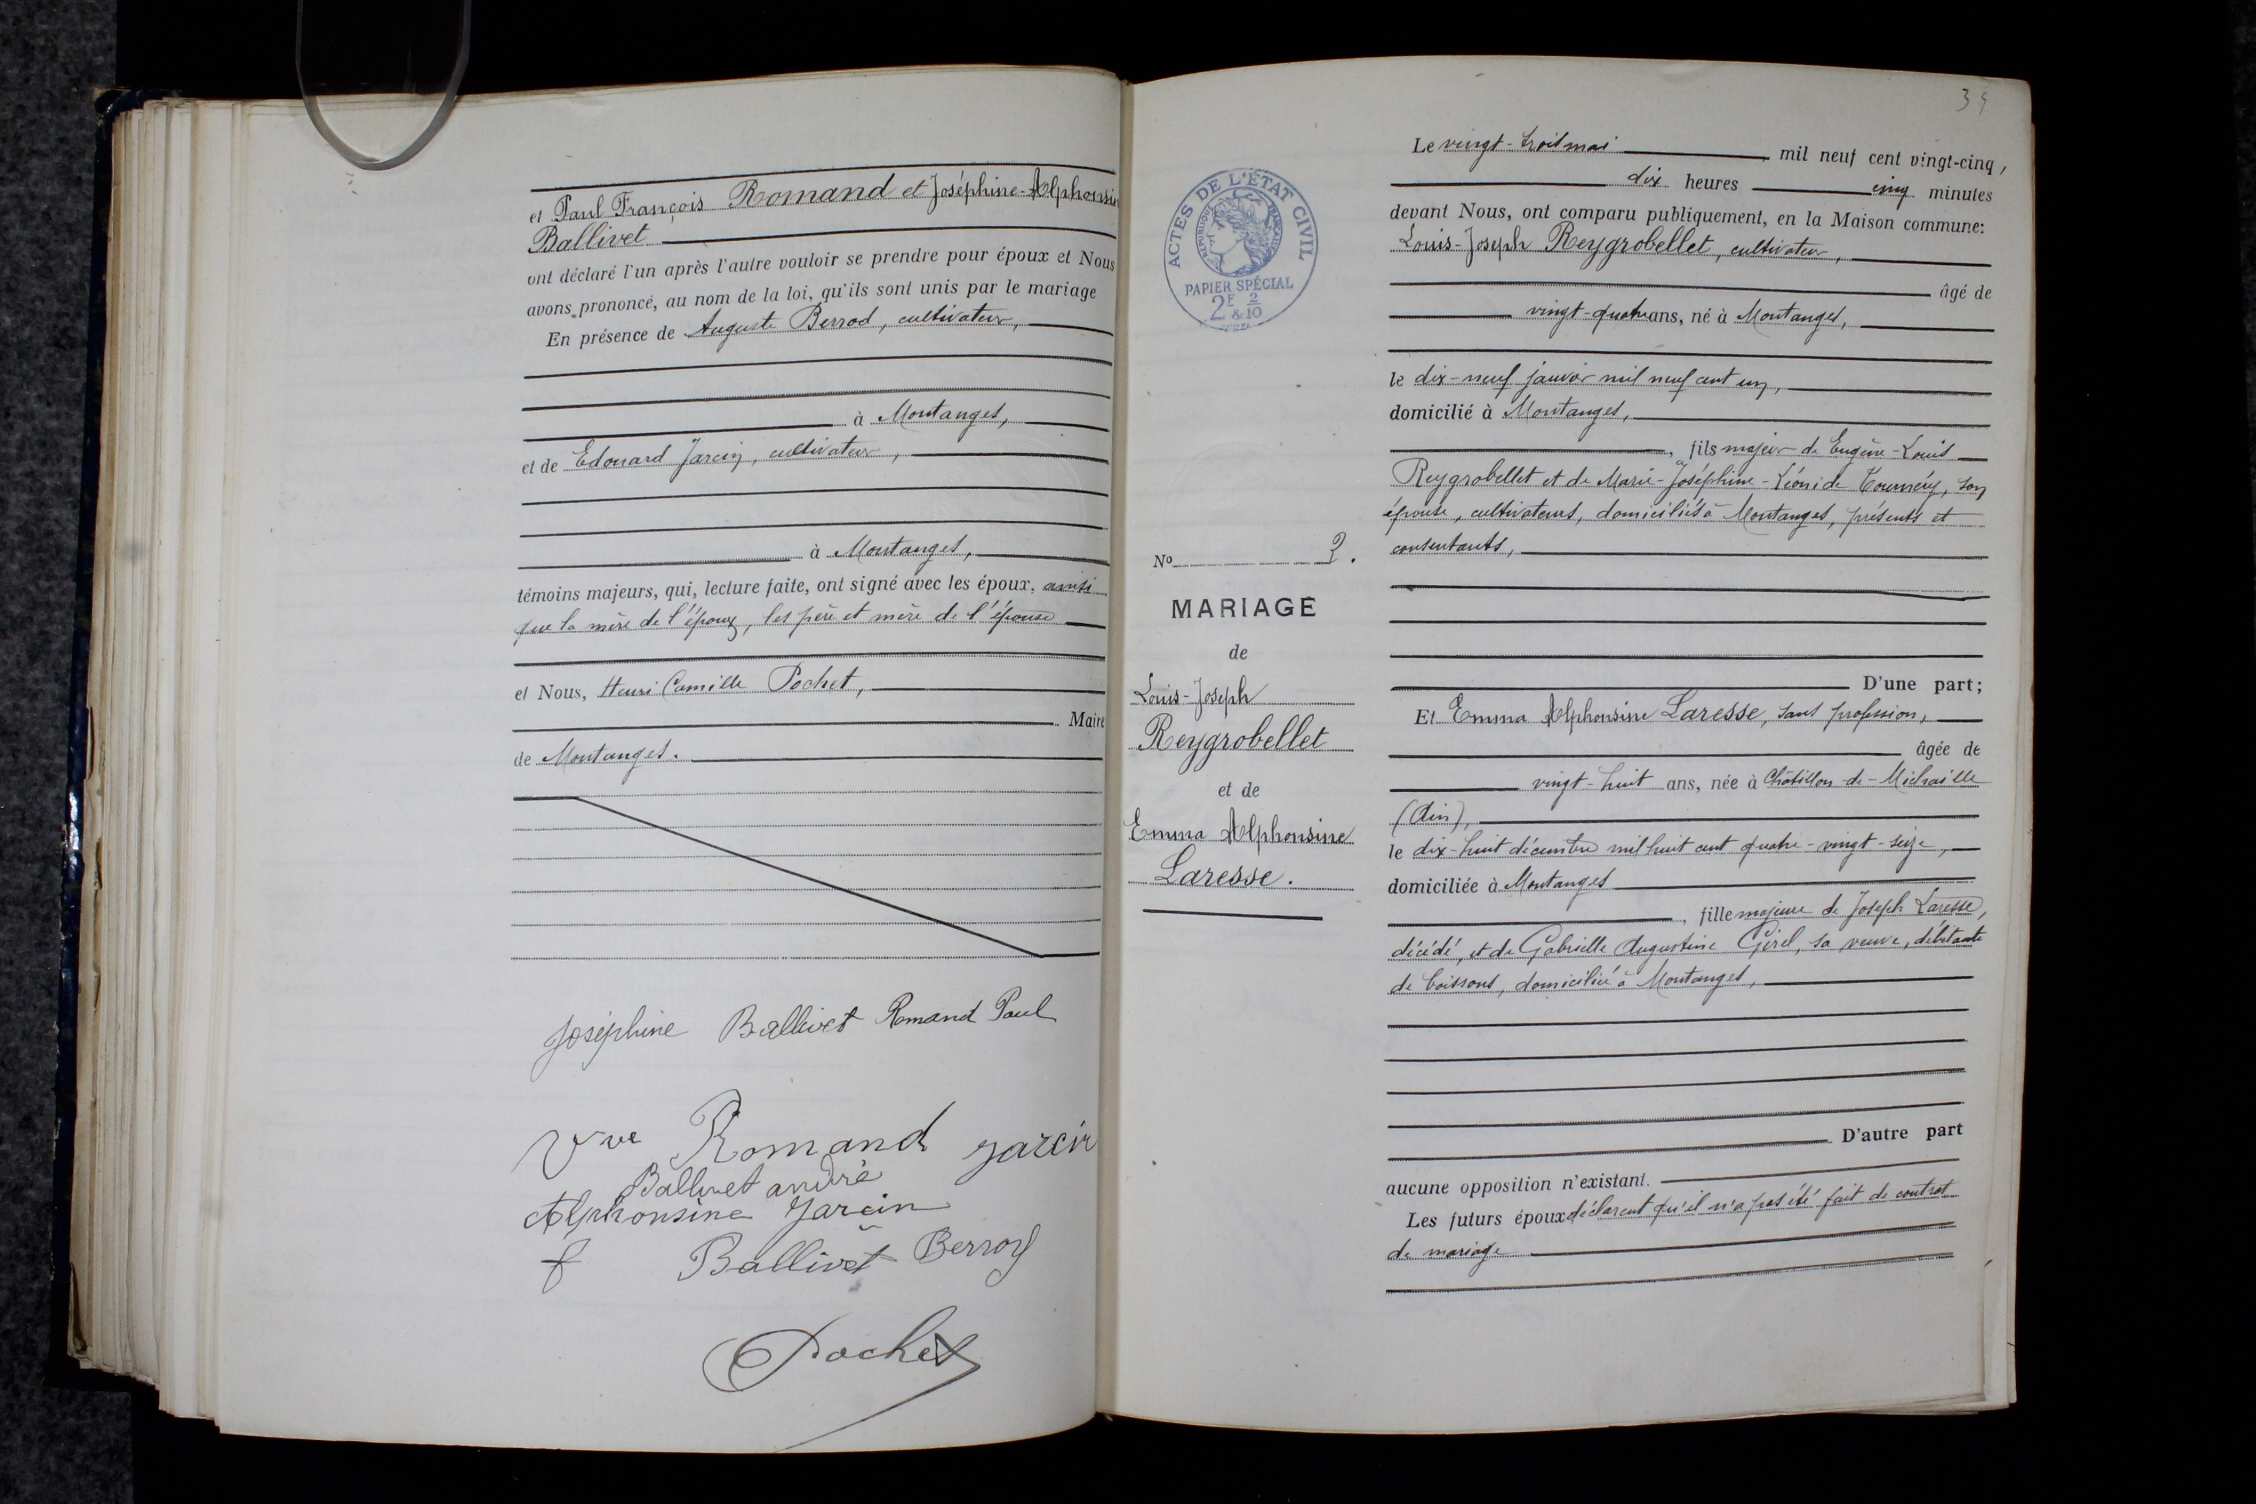 et Paul François Romand et Joséphine-Alphonsine
Ballivet
ont déclaré l'un après l'autre vouloir se prendre pour époux et Nous
avons prononcé, au nom de la loi, qu'ils sont unis par le mariage
En présence de Auguste Berrod, cultivateur,
à Montanges,
et de Edouard Jarcin, cultivateur,
à Montanges,
témoins majeurs, qui, lecture faite, ont signé avec les époux, ainsi
que la mère de l'époux, les père et mère de l'épouse
et Nous, Henri Camille Pochet,
Maire
de Montanges.
Joséphine Ballivet Romand Paul
Vve Romand Jarcin
Ballivet andré
Alphonsine Jarcin
f Ballivet Berrod
Pochet
ACTES DE L'ÉTAT CIVIL
RÉPUBLIQUE FRANÇAISE
PAPIER SPÉCIAL
2F & 2/10
No 2.
MARIAGE
de
Louis-Joseph
Reygrobellet
et de
Emma Alphonsine
Laresse.
Le vingt-trois mai mil neuf cent vingt-cinq,
dix heures cinq minutes
devant Nous, ont comparu publiquement, en la Maison commune:
Louis-Joseph Reygrobellet, cultivateur,
âgé de
vingt-quatre ans, né à Montanges,
le dix-neuf janvier mil neuf cent un,
domicilié à Montanges,
, fils majeur de Eugène-Louis
Reygrobellet et de Marie-Joséphine-Léonide Tournéry, son
épouse, cultivateurs, domiciliés à Montanges, présents et
consentants,
D'une part;
Et Emma Alphonsine Laresse, sans profession,
âgée de
vingt-huit ans, née à Châtillon-de-Michaille
(Ain),
le dix-huit décembre mil huit cent quatre-vingt-seize,
domiciliée à Montanges
, fille majeure de Joseph Laresse,
décédé, et de Gabrielle Augustine Girel, sa veuve, débitante
de boissons, domiciliée à Montanges,
D'autre part
aucune opposition n'existant.
Les futurs époux déclarent qu'il n'a pas été fait de contrat
de mariage